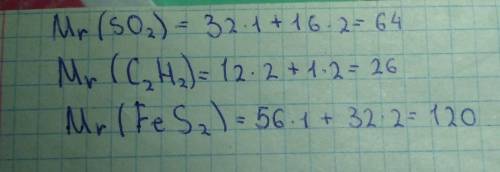 Mr (SO₂) = 32·1 + 16·2 = 64
Mr (C₂H₂) = 12·2 + 1·2 = 26
Mr (FeS₂) = 56·1 + 32·2 = 120